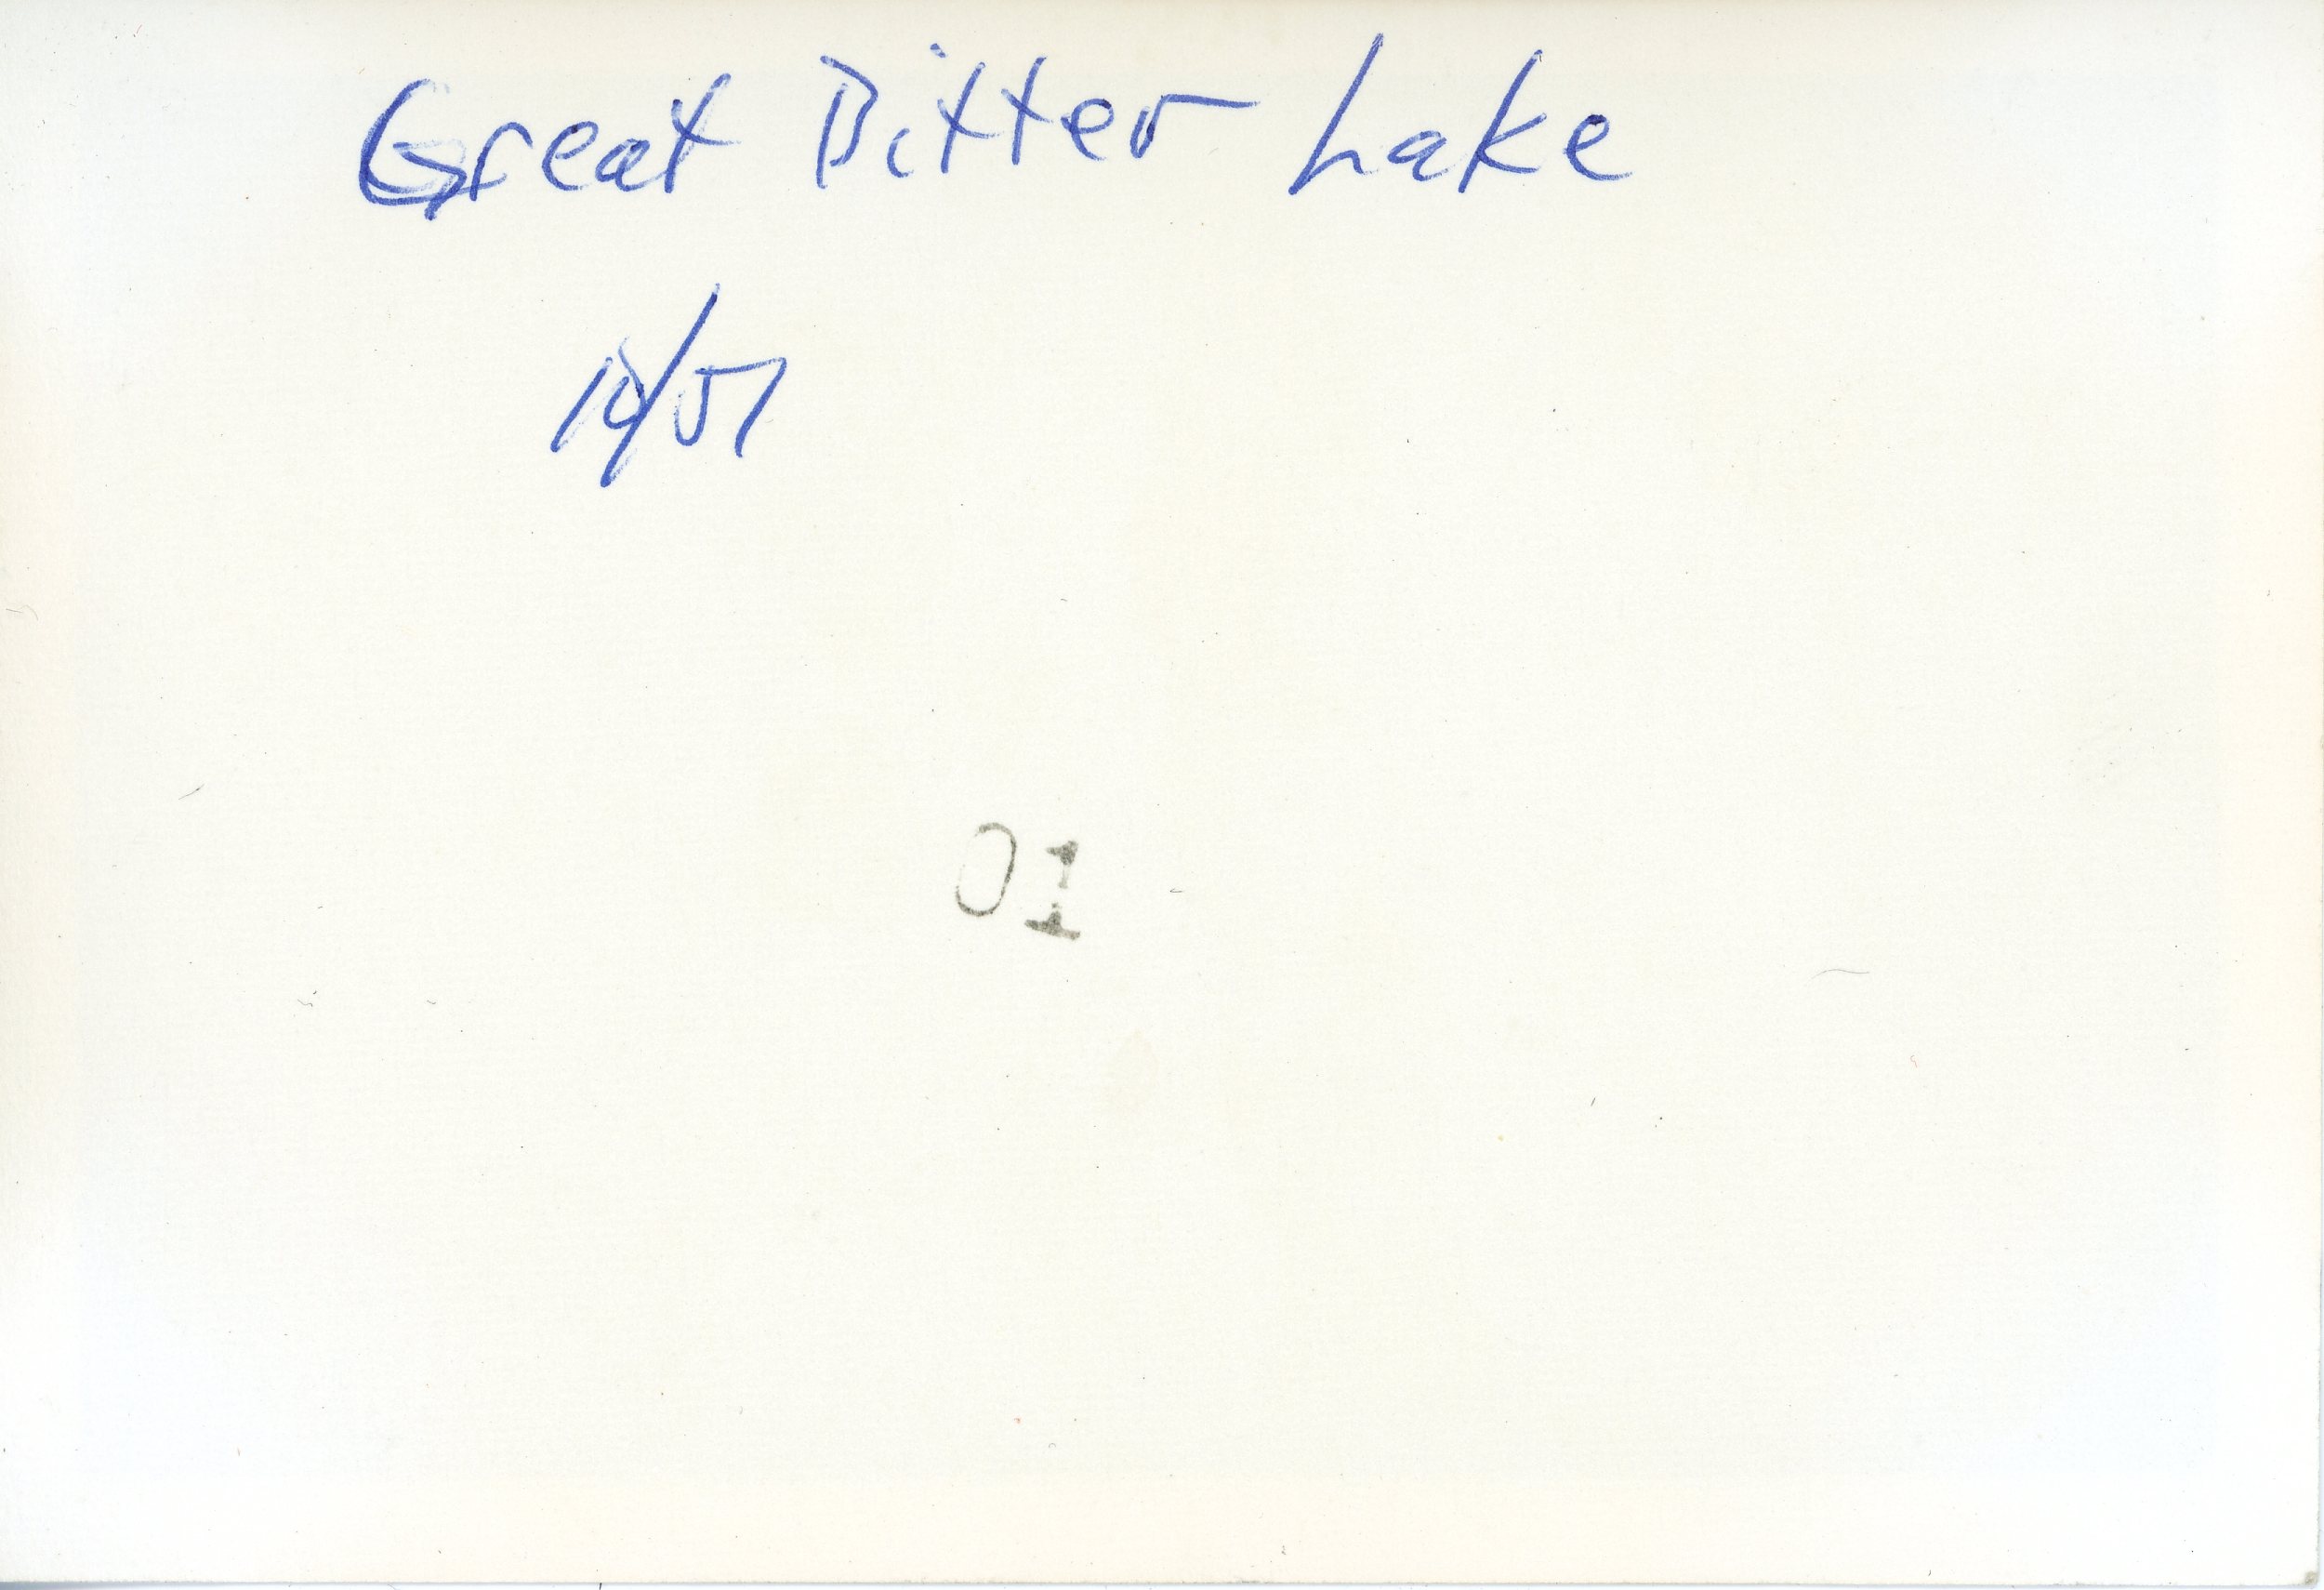 Great Bitter Lake
10/57
01